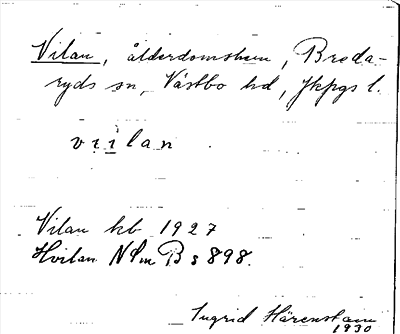 Vilan, ålderdomshem, Breda-
ryds sn, Västbo hd, Jkpgs l.
viilan
Vilan kb 1927
Hvilan NSm B s 898.
Ingrid Härenstam
1930